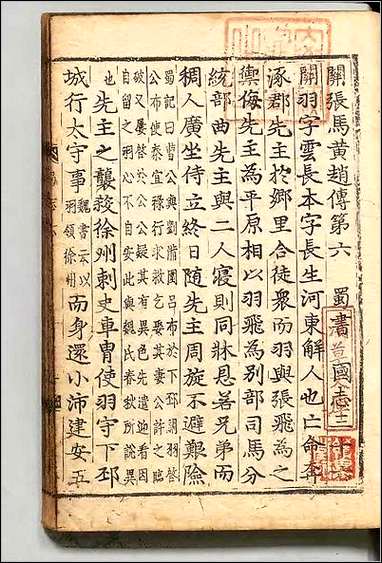 關張馬黃趙傳第六　蜀書　國志三
關羽字雲長本字長生河東解人也亡命奔
涿郡先主於鄉里合徒衆而羽與張飛為之
禦侮先主為平原相以羽飛為別部司馬分
統部曲先主與二人寢則同牀恩若兄弟而
稠人廣坐侍立終日隨先主周旋不避艱險
蜀記曰曹公與劉備圍呂布於下邳關羽啓
公布使秦宜祿行求救乞娶其妻公許之臨
破又屢啓於公公疑其有異色先遣迎看因
自留之羽心不自安此與魏氏春秋所說異
也先主之襲殺徐州刺史車冑使羽守下邳
城行太守事魏書云以羽領徐州而身還小沛建安五